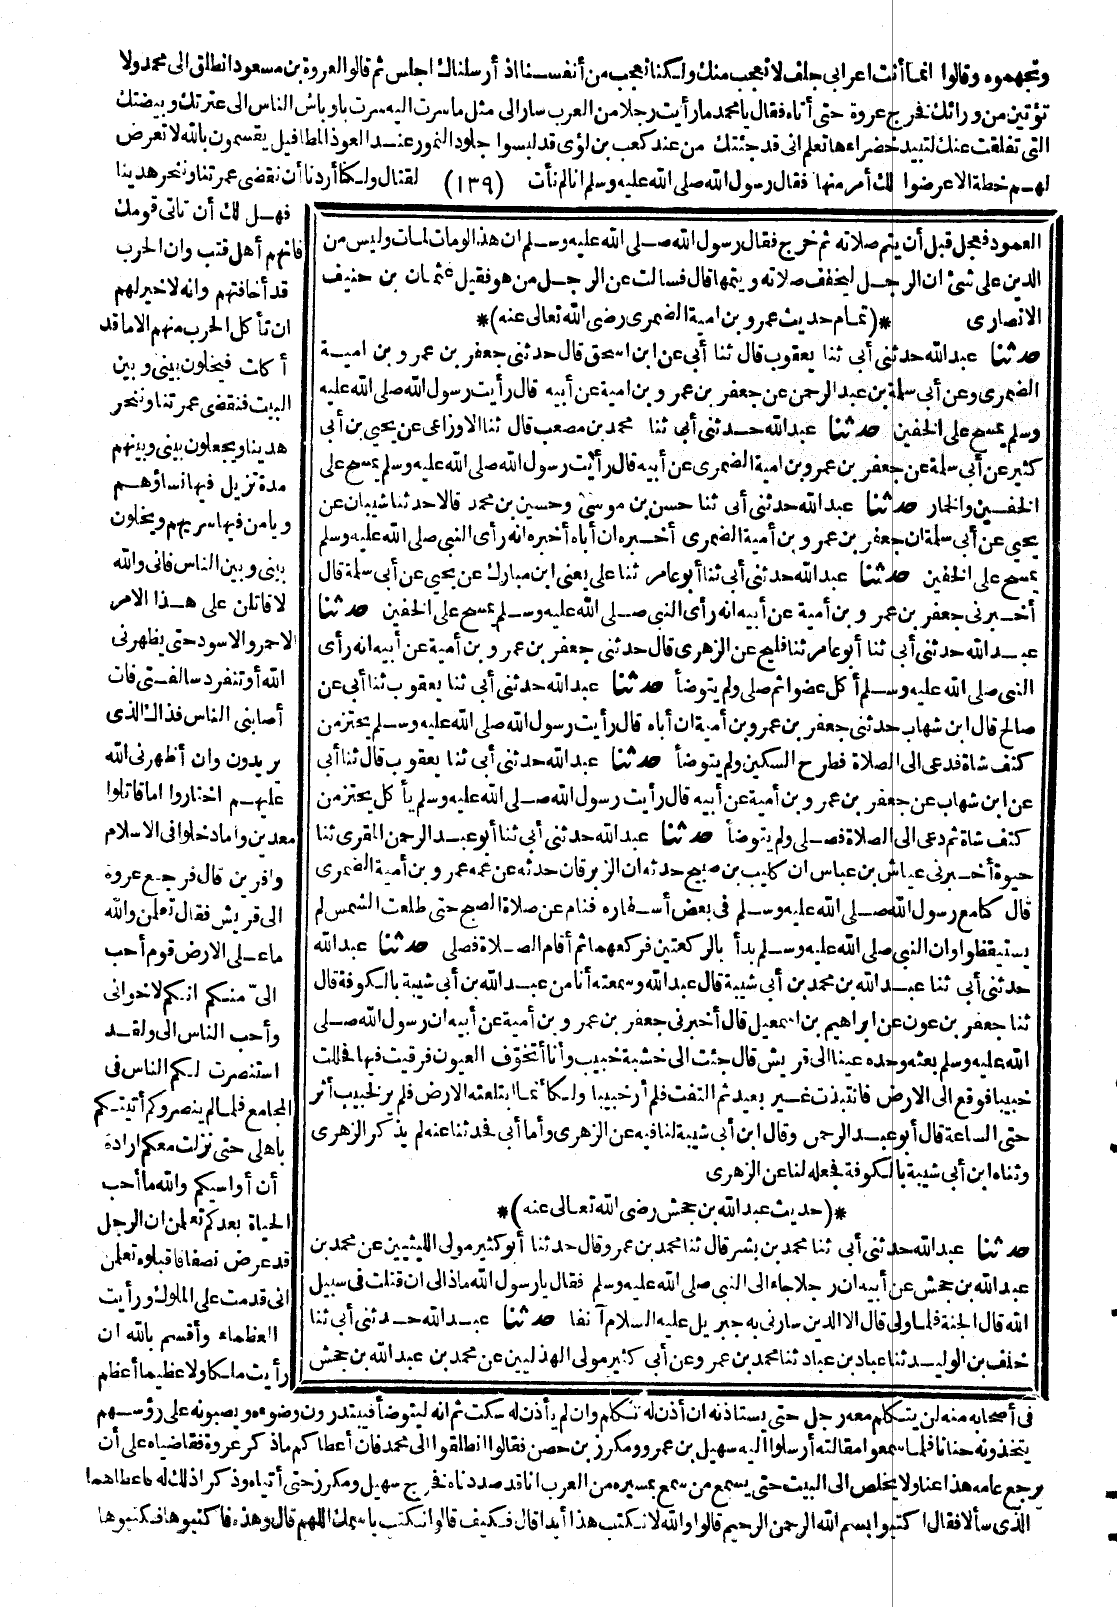 وتجهموه وقالوا انما أنت اعرابى جلف لا نعجب منك ولكنا نعجب من أنفسنا اذ أرسلناك اجلس ثم قالوا لعروة بن مسعود انطلق الى محمد ولا
تؤتين من ورائك فخرج عروة حتى أتاه فقال يا محمد ما رأيت رجلا من العرب سار الى مثل ما سرت اليه سرت باوباش الناس الى عترتك وبيضتك
التى تفلقت عنك لتبيد خضراءها تعلم انى قد جئتك من عند كعب بن لؤى قد لبسوا جلود النمور عند العوذ المطافيل يقسمون بالله لا تعرض
لهم خطة الا عرضوا لك أمر منها فقال رسول الله صلى الله عليه وسلم انا لم نأت (١٣٩) لقتال ولكنا أردنا أن نقضى عمرتنا وننحر هدينا
العمود فعجل قبل أن يتم صلاته ثم خرج فقال رسول الله صلى الله عليه وسلم ان هذا لو مات لمات وليس من
الدين على شئ ان الرجل ليخفف صلاته ويتمها قال فسالت عن الرجل من هو فقيل عثمان بن حنيف
الانصارى *(تمام حديث عمرو بن امية الضمرى رضى الله تعالى عنه)*
حدثنا عبد الله حدثنى أبى ثنا يعقوب قال ثنا أبى عن ابن اسحق قال حدثنى جعفر بن عمرو بن امية
الضمرى وعن أبى سلمة بن عبد الرحمن عن جعفر بن عمرو بن امية عن أبيه قال رأيت رسول الله صلى الله عليه
وسلم يمسح على الخفين حدثنا عبد الله حدثنى أبى ثنا محمد بن مصعب قال ثنا الاوزاعى عن يحيى بن أبى
كثير عن أبى سلمة عن جعفر بن عمرو بن امية الضمرى عن أبيه قال رأيت رسول الله صلى الله عليه وسلم يمسح على
الخفين والخمار حدثنا عبد الله حدثنى أبى ثنا حسن بن موسى وحسين بن محمد قالا حدثنا شيبان عن
يحيى عن أبى سلمة ان جعفر بن عمرو بن أمية الضمرى أخبره ان أباه أخبره انه رأى النبى صلى الله عليه وسلم
يمسح على الخفين حدثنا عبد الله حدثنى أبى ثنا أبو عامر ثنا على يعنى ابن مبارك عن يحيى عن أبى سلمة قال
أخبرنى جعفر بن عمرو بن أمية عن أبيه انه رأى النبى صلى الله عليه وسلم يمسح على الخفين حدثنا
عبد الله حدثنى أبى ثنا أبو عامر ثنا فليح عن الزهرى قال حدثنى جعفر بن عمرو بن أمية عن أبيه انه رأى
النبى صلى الله عليه وسلم أكل عضوا ثم صلى ولم يتوضأ حدثنا عبد الله حدثنى أبى ثنا يعقوب ثنا أبى عن
صالح قال ابن شهاب حدثنى جعفر بن عمرو بن أمية ان أباه قال رأيت رسول الله صلى الله عليه وسلم يحتز من
كتف شاة فدعى الى الصلاة فطرح السكين ولم يتوضأ حدثنا عبد الله حدثنى أبى ثنا يعقوب قال ثنا أبى
عن ابن شهاب عن جعفر بن عمرو بن أمية عن أبيه قال رأيت رسول الله صلى الله عليه وسلم يأكل يحتز من
كتف شاة ثم دعى الى الصلاة فصلى ولم يتوضأ حدثنا عبد الله حدثنى أبى ثنا أبو عبد الرحمن المقرى ثنا
حيوة أخبرنى عياش بن عباس ان كليب بن صبيح حدثه ان الزبرقان حدثه عن عمه عمرو بن أمية الضمرى
قال كنا مع رسول الله صلى الله عليه وسلم فى بعض أسفاره فنام عن صلاة الصبح حتى طلعت الشمس لم
يستيقظوا وان النبى صلى الله عليه وسلم بدأ بالركعتين فركعهما ثم أقام الصلاة فصلى حدثنا عبد الله
حدثنى أبى ثنا عبد الله بن محمد بن أبى شيبة قال عبد الله وسمعته أنا من عبد الله بن أبى شيبة بالكوفة قال
ثنا جعفر بن عون عن ابراهيم بن اسمعيل قال أخبرنى جعفر بن عمرو بن أمية عن أبيه ان رسول الله صلى
الله عليه وسلم بعثه وحده عينا الى قريش قال جئت الى خشبة خبيب وأنا أتخوف العيون فرقيت فيها فحللت
خبيبا فوقع الى الارض فانتبذت غير بعيد ثم التفت فلم أر خبيبا ولكأنما ابتلعته الارض فلم ير لخبيب أثر
حتى الساعة قال أبو عبد الرحمن وقال ابن أبى شيبة لنا فيه عن الزهرى وأما أبى فحدثنا عنه لم يذكر الزهرى
وثناه ابن أبى شيبة بالكوفة فجعله لنا عن الزهرى
*(حديث عبد الله بن جحش رضى الله تعالى عنه)*
حدثنا عبد الله حدثنى أبى ثنا محمد بن بشر قال ثنا محمد بن عمرو قال حدثنا أبو كثير مولى الليثيين عن محمد بن
عبد الله بن جحش عن أبيه ان رجلا جاء الى النبى صلى الله عليه وسلم فقال يا رسول الله ماذا لى ان قتلت فى سبيل
الله قال الجنة فلما ولى قال الا الدين سارنى به جبريل عليه السلام آنفا حدثنا عبد الله حدثنى أبى ثنا
خلف بن الوليد ثنا عباد بن عباد ثنا محمد بن عمرو عن أبى كثير مولى الهذليين عن محمد بن عبد الله بن جحش
فهل لك أن تاتى قومك
فانهم أهل قتب وان الحرب
قد أخافتهم وانه لا خير لهم
ان تأكل الحرب منهم الا ما قد
أكلت فيخلون بينى وبين
البيت فنقضى عمرتنا وننحر
هدينا ويجعلون بينى وبينهم
مدة تزيل فيها نساؤهم
ويامن فيها سربهم ويخلون
بينى وبين الناس فانى والله
لاقاتلن على هذا الامر
الاحمر والاسود حتى يظهرنى
الله أو تنفرد سالفتى فان
أصابنى الناس فذاك الذى
يريدون وان أظهرنى الله
عليهم اختاروا اما قاتلوا
معدين واما دخلوا فى الاسلام
وافرين قال فرجع عروة
الى قريش فقال تعلمن والله
ما على الارض قوم أحب
الى منكم انكم لاخوانى
وأحب الناس الى ولقد
استنصرت لكم الناس فى
المجامع فلما لم ينصروكم أتيتكم
باهلى حتى نزلت معكم ارادة
أن أواسيكم والله ما أحب
الحياة بعدكم تعلمن ان الرجل
قد عرض نصفا فاقبلوه تعلمن
انى قدمت على الملوك ورأيت
العظماء وأقسم بالله ان
رأيت ملكا ولا عظيما أعظم
فى أصحابه منه لن يتكلم معه رجل حتى يستاذنه ان أذن له تكلم وان لم يأذن له سكت ثم انه ليتوضأ فيبتدرون وضوءه ويصبونه على رؤسهم
يتخذونه حنانا فلما سمعوا مقالته أرسلوا اليه سهيل بن عمرو ومكرز بن حصن فقالوا انطلقوا الى محمد فان أعطاكم ما ذكر عروة فقاضياه على أن
يرجع عامه هذا عنا ولا يخلص الى البيت حتى يسمع من سمع بمسيره من العرب انا قد صددناه فخرج سهيل ومكرز حتى أتياه وذكرا ذلك له فاعطاهما
الذى سألا فقال اكتبوا بسم الله الرحمن الرحيم قالوا والله لا نكتب هذا أبدا قال فكيف قالوا نكتب باسمك اللهم قال وهذه فاكتبوها فكتبوها